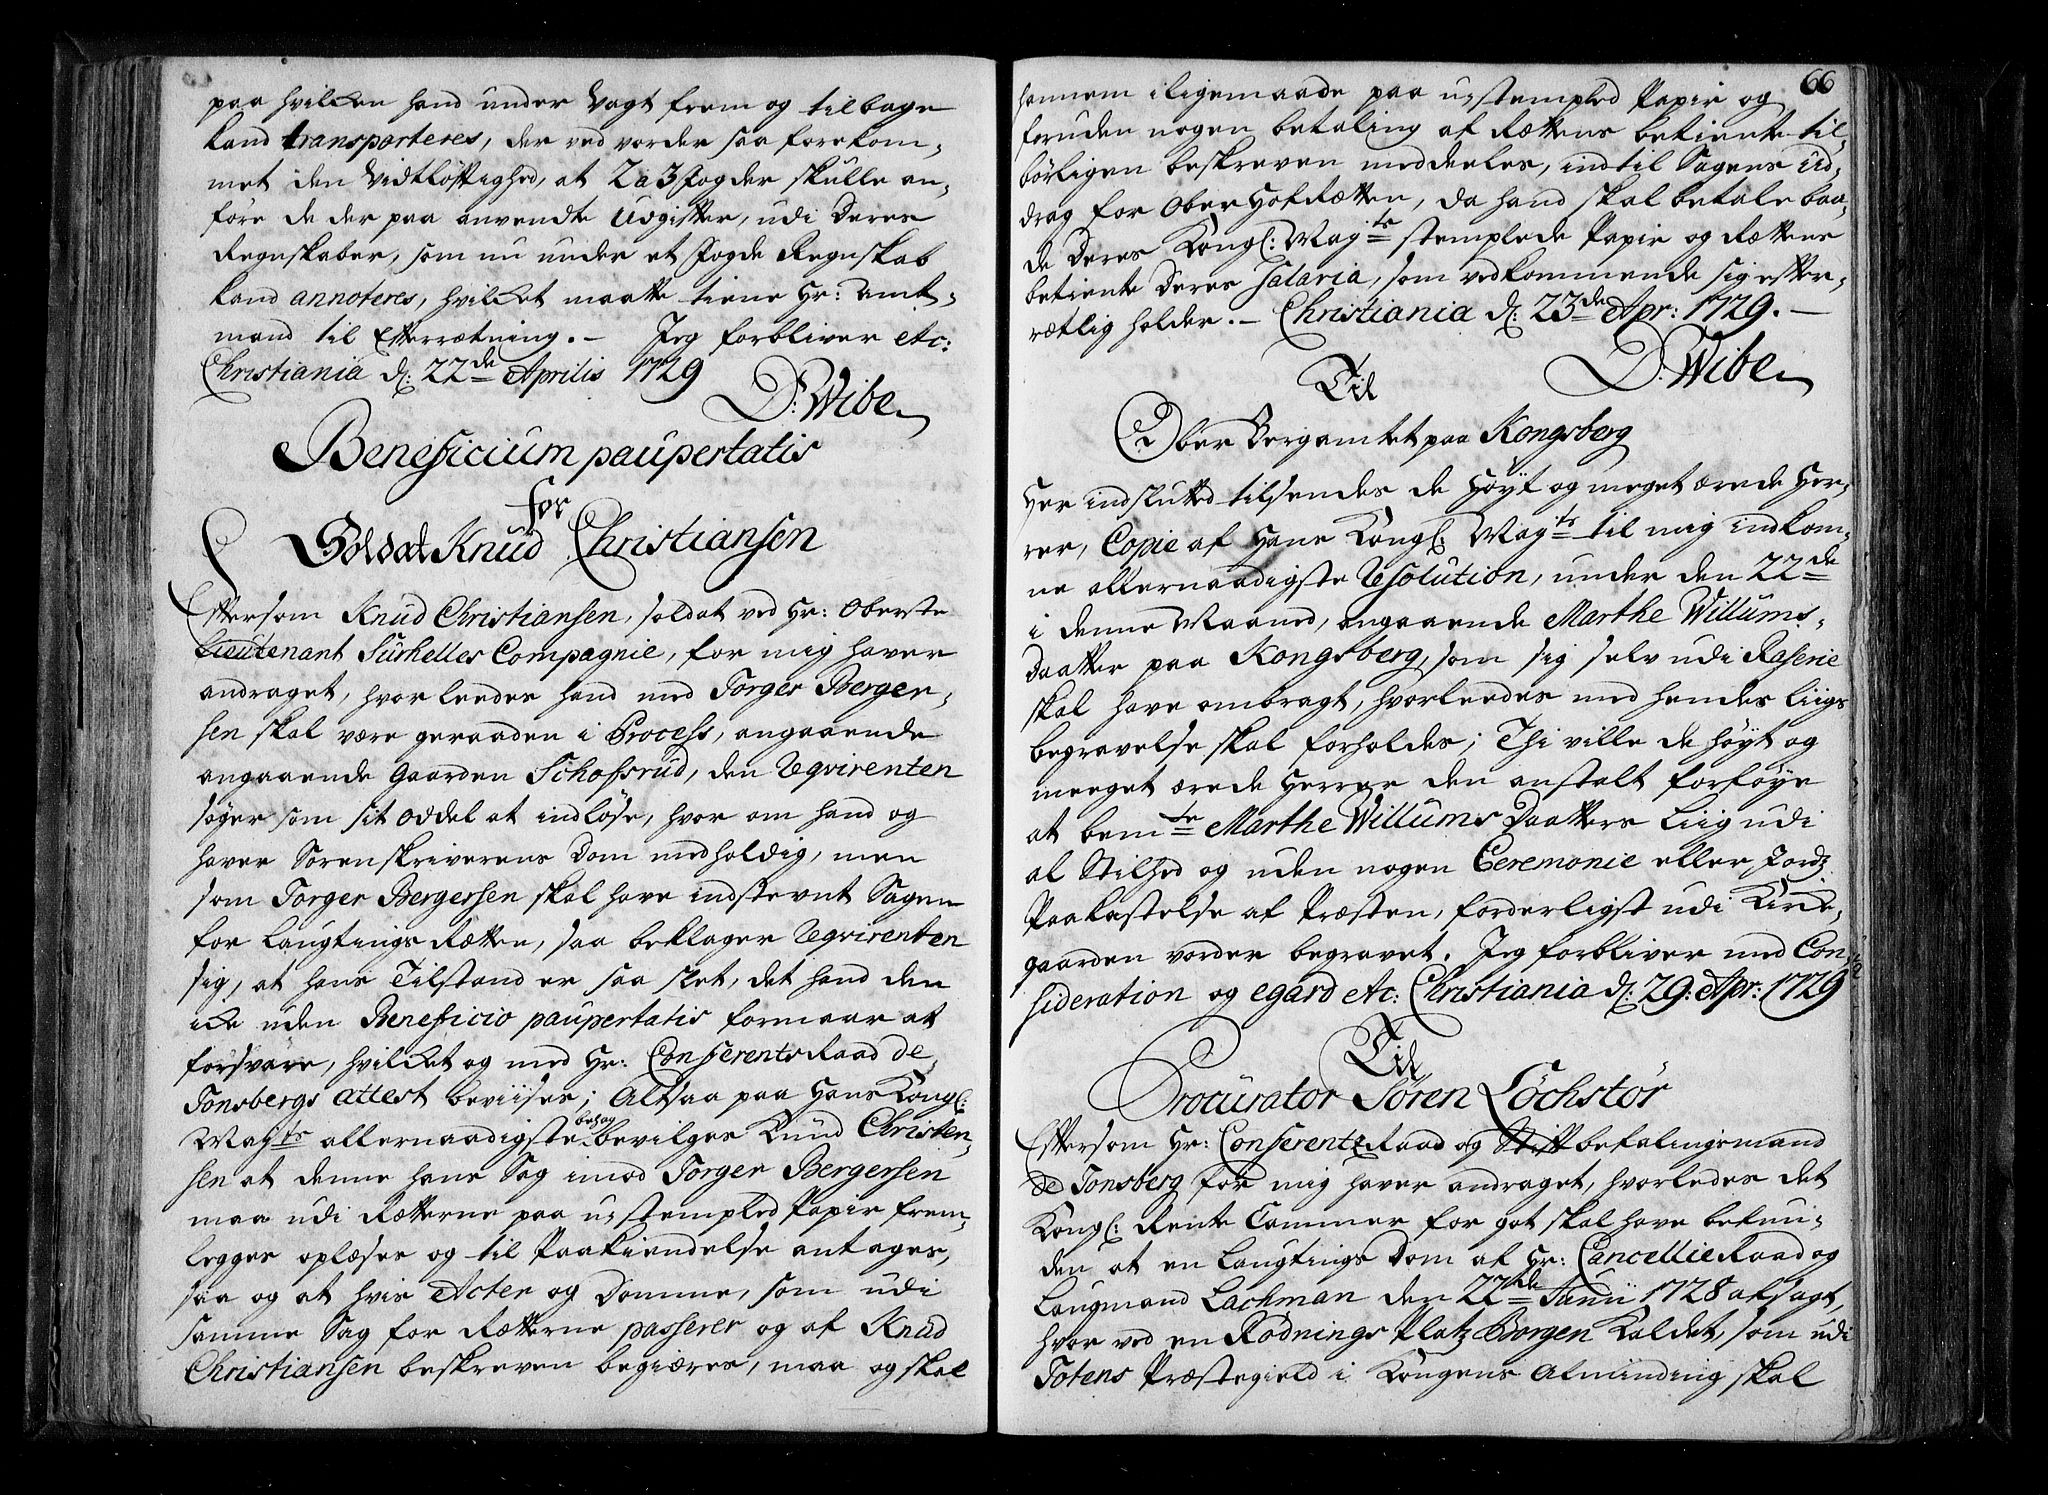 paa hvilken hand under Vagt frem og tilbage
kand transporteres, der ved vorder saa forekom-
met den Vidtløftighed, at 2 a 3 Fogder skulle an-
føre de der paa anvendte Udgifter, udi Deres
Regnskaber, som nu under et Fogde Regnskab
kand annoteres, hvilket maatte tiene Hr: Amt-
mand til Efterretning. - Jeg forbliver etc:
Christiania d: 22de Aprilis 1729
D: Wibe
Beneficium paupertatis
for
Soldat Knud Christiansen
Eftersom Knud Christiansen, soldat ved Hr: Oberste
Lieutenant Sürhelles Compagnie, for mig haver
andraget, hvorleedes hand med Torger Berger-
sen skal være geraaden i Process, angaaende
angaaende Gaarden Schofsrud, den Reqvirenten
søger som sit Oddel at indløse, hvor om hand og
haver Sorenskriverens Dom medholdig, men
som Torger Bergersen skal have indstevnt Sagen
for Laugtings Retten, saa beklager Reqvirenten
sig, at hans Tilstand er saa slet, det hand den
icke uden Beneficio paupertatis formaar at
forsvare, hvilket og med Hr: Conferents Raad de
Tonsbergs attest beviises; Altsaa paa Hans Kongl:
Mayts allernaadigste behag bevilges Knud Christen-
sen at denne hans Sag imod Torger Bergersen
maa udi Retterne paa u-stempled Papir frem-
legges oplæses og til Paakiendelse antages,
saa og at hvis Acter og Domme, som udi
samme Sag for Retterne passerer og af Knud
Christiansen beskreven begiæres, maa og skal
66
hannem iligemaade paa u-stempled Papir og
foruden nogen betaling af Rettens betiente til-
børligen beskreven meddeeles, indtil Sagens Ud-
drag for Ober Hof Retten, da hand skal betale baa-
de Deres Kongl: Mayts stemplede Papir og Rettens
betiente Deres Salaria, som vedkommende sig efter-
retlig holder. - Christiania d: 23de Apr: 1729. -
D: Wibe
Til
Ober Bergamtet paa Kongsberg
Her indslutted tilsendes de Høyt og meget ærede Her-
rer, Copie af Hans Kongl: Mayts til mig indkom-
ne allernaadigste Resolution, under den 22de
i denne Maaned, angaaende Marthe Willums-
Daatter paa Kongsberg, som sig selv udi Raserie
skal have ombragt, hvorleedes med hendes Liigs
begravelse skal forholdes; Thi ville de høyt og
meeget ærede Herrer den anstalt forføye
at bemte Marthe Willums Daatters Liig udi
al Stilhed og uden nogen Ceremonie eller Jords
Paakastelse af Præsten, forderligst udi Kirke-
gaarden vorder begravet. Jeg forbliver med Con-
sideration og egard etc: Christiania d: 29: Apr: 1729
Til
Procurator Søren Løchstør
Eftersom Hr: Conferentz Raad og Stiftbefalingsmand
de Tonsberg for mig haver andraget, hvorledes det
Kongl: Rente Cammer for got skal have befun-
den at en Laugtings Dom af Hr: Cancellie Raad og
Laugmand Lachman den 22de Junii 1728 afsagt,
hvor ved en Rødnings Platz Borgen kaldet, som udi
Totens Præstegield i Kongens Alminding skal